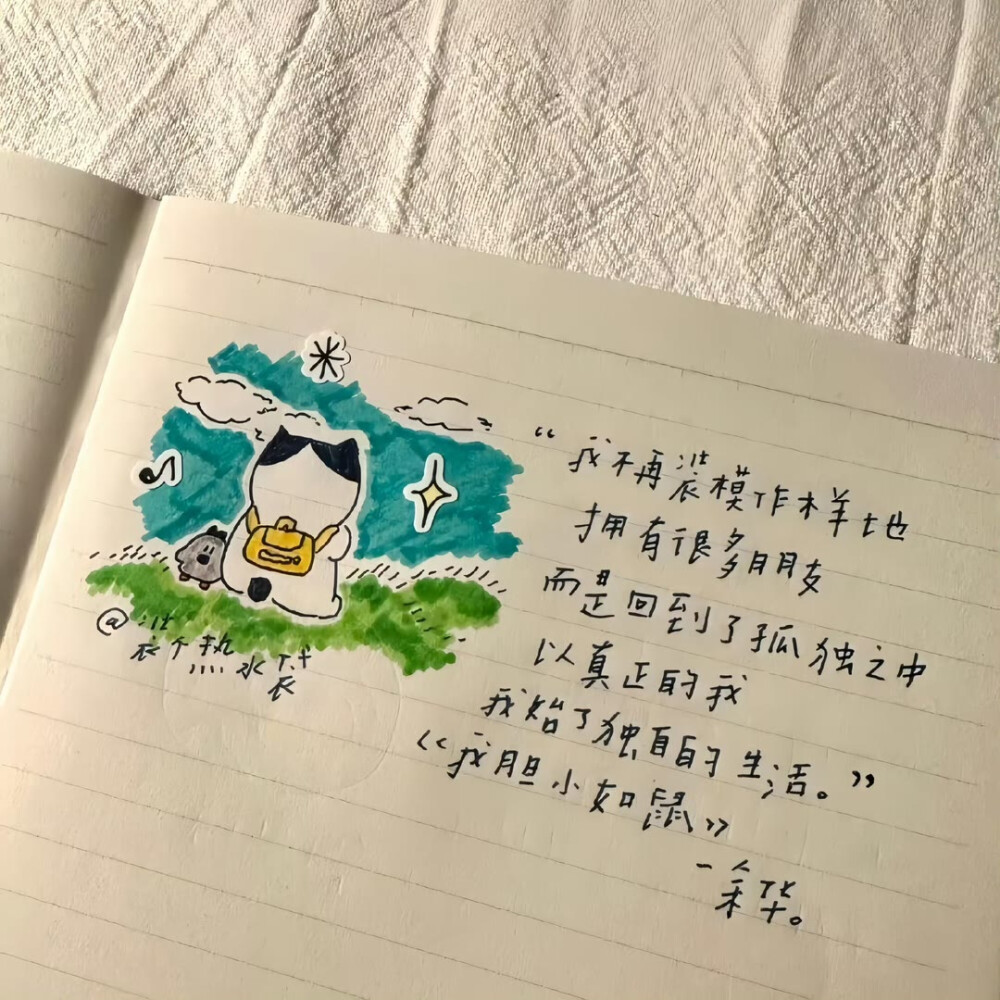 “我不再装模作样地
拥有很多朋友
而是回到了孤独之中
以真正的我
我始了独自的生活。”
《我胆小如鼠》
—余华。
@装个热水袋